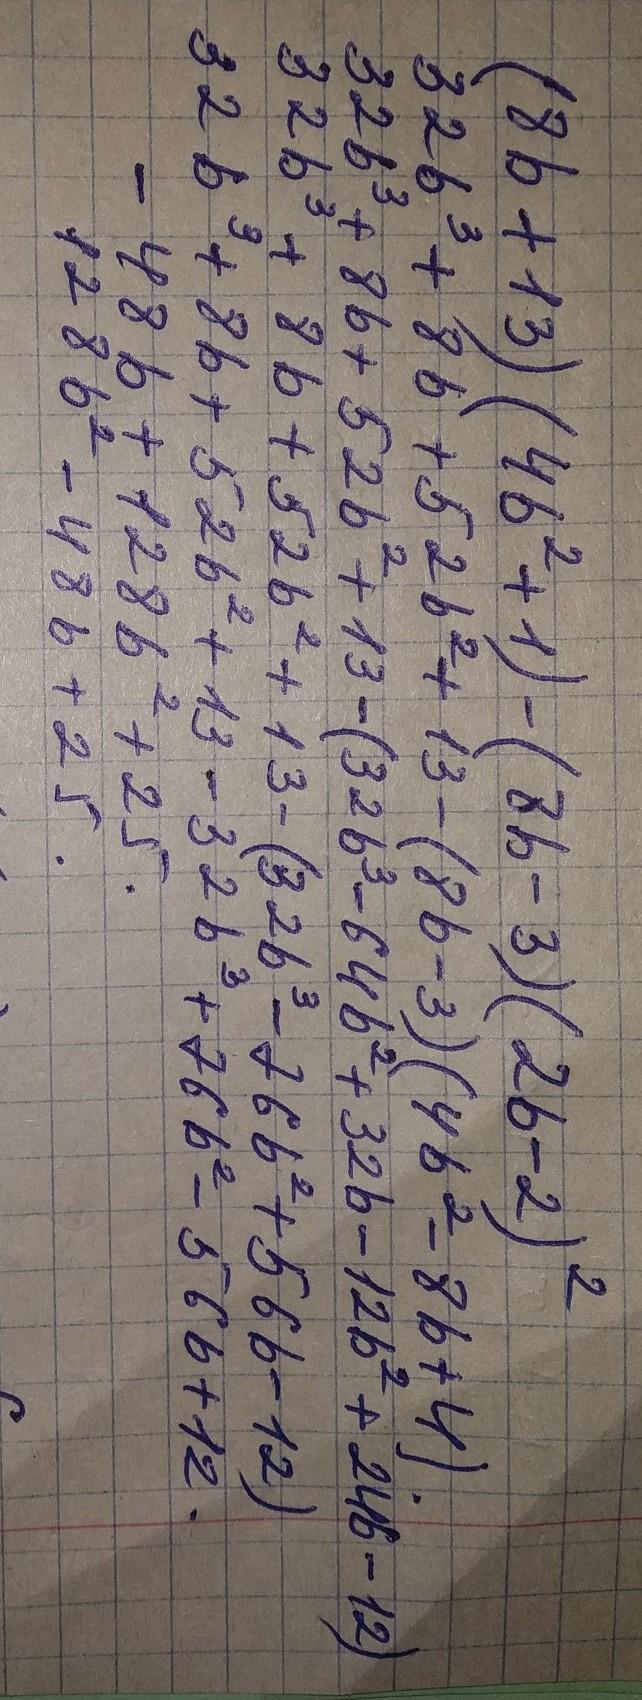 (8b+13)(4b²+1)-(8b-3)(2b-2)²
32b³+8b+52b²+13-(8b-3)(4b²-8b+4).
32b³+8b+52b²+13-(32b³-64b²+32b-12b²+24b-12)
32b³+8b+52b²+13-(32b³-76b²+56b-12)
32b³+8b+52b²+13-32b³+76b²-56b+12.
-48b+128b²+25.
128b²-48b+25.